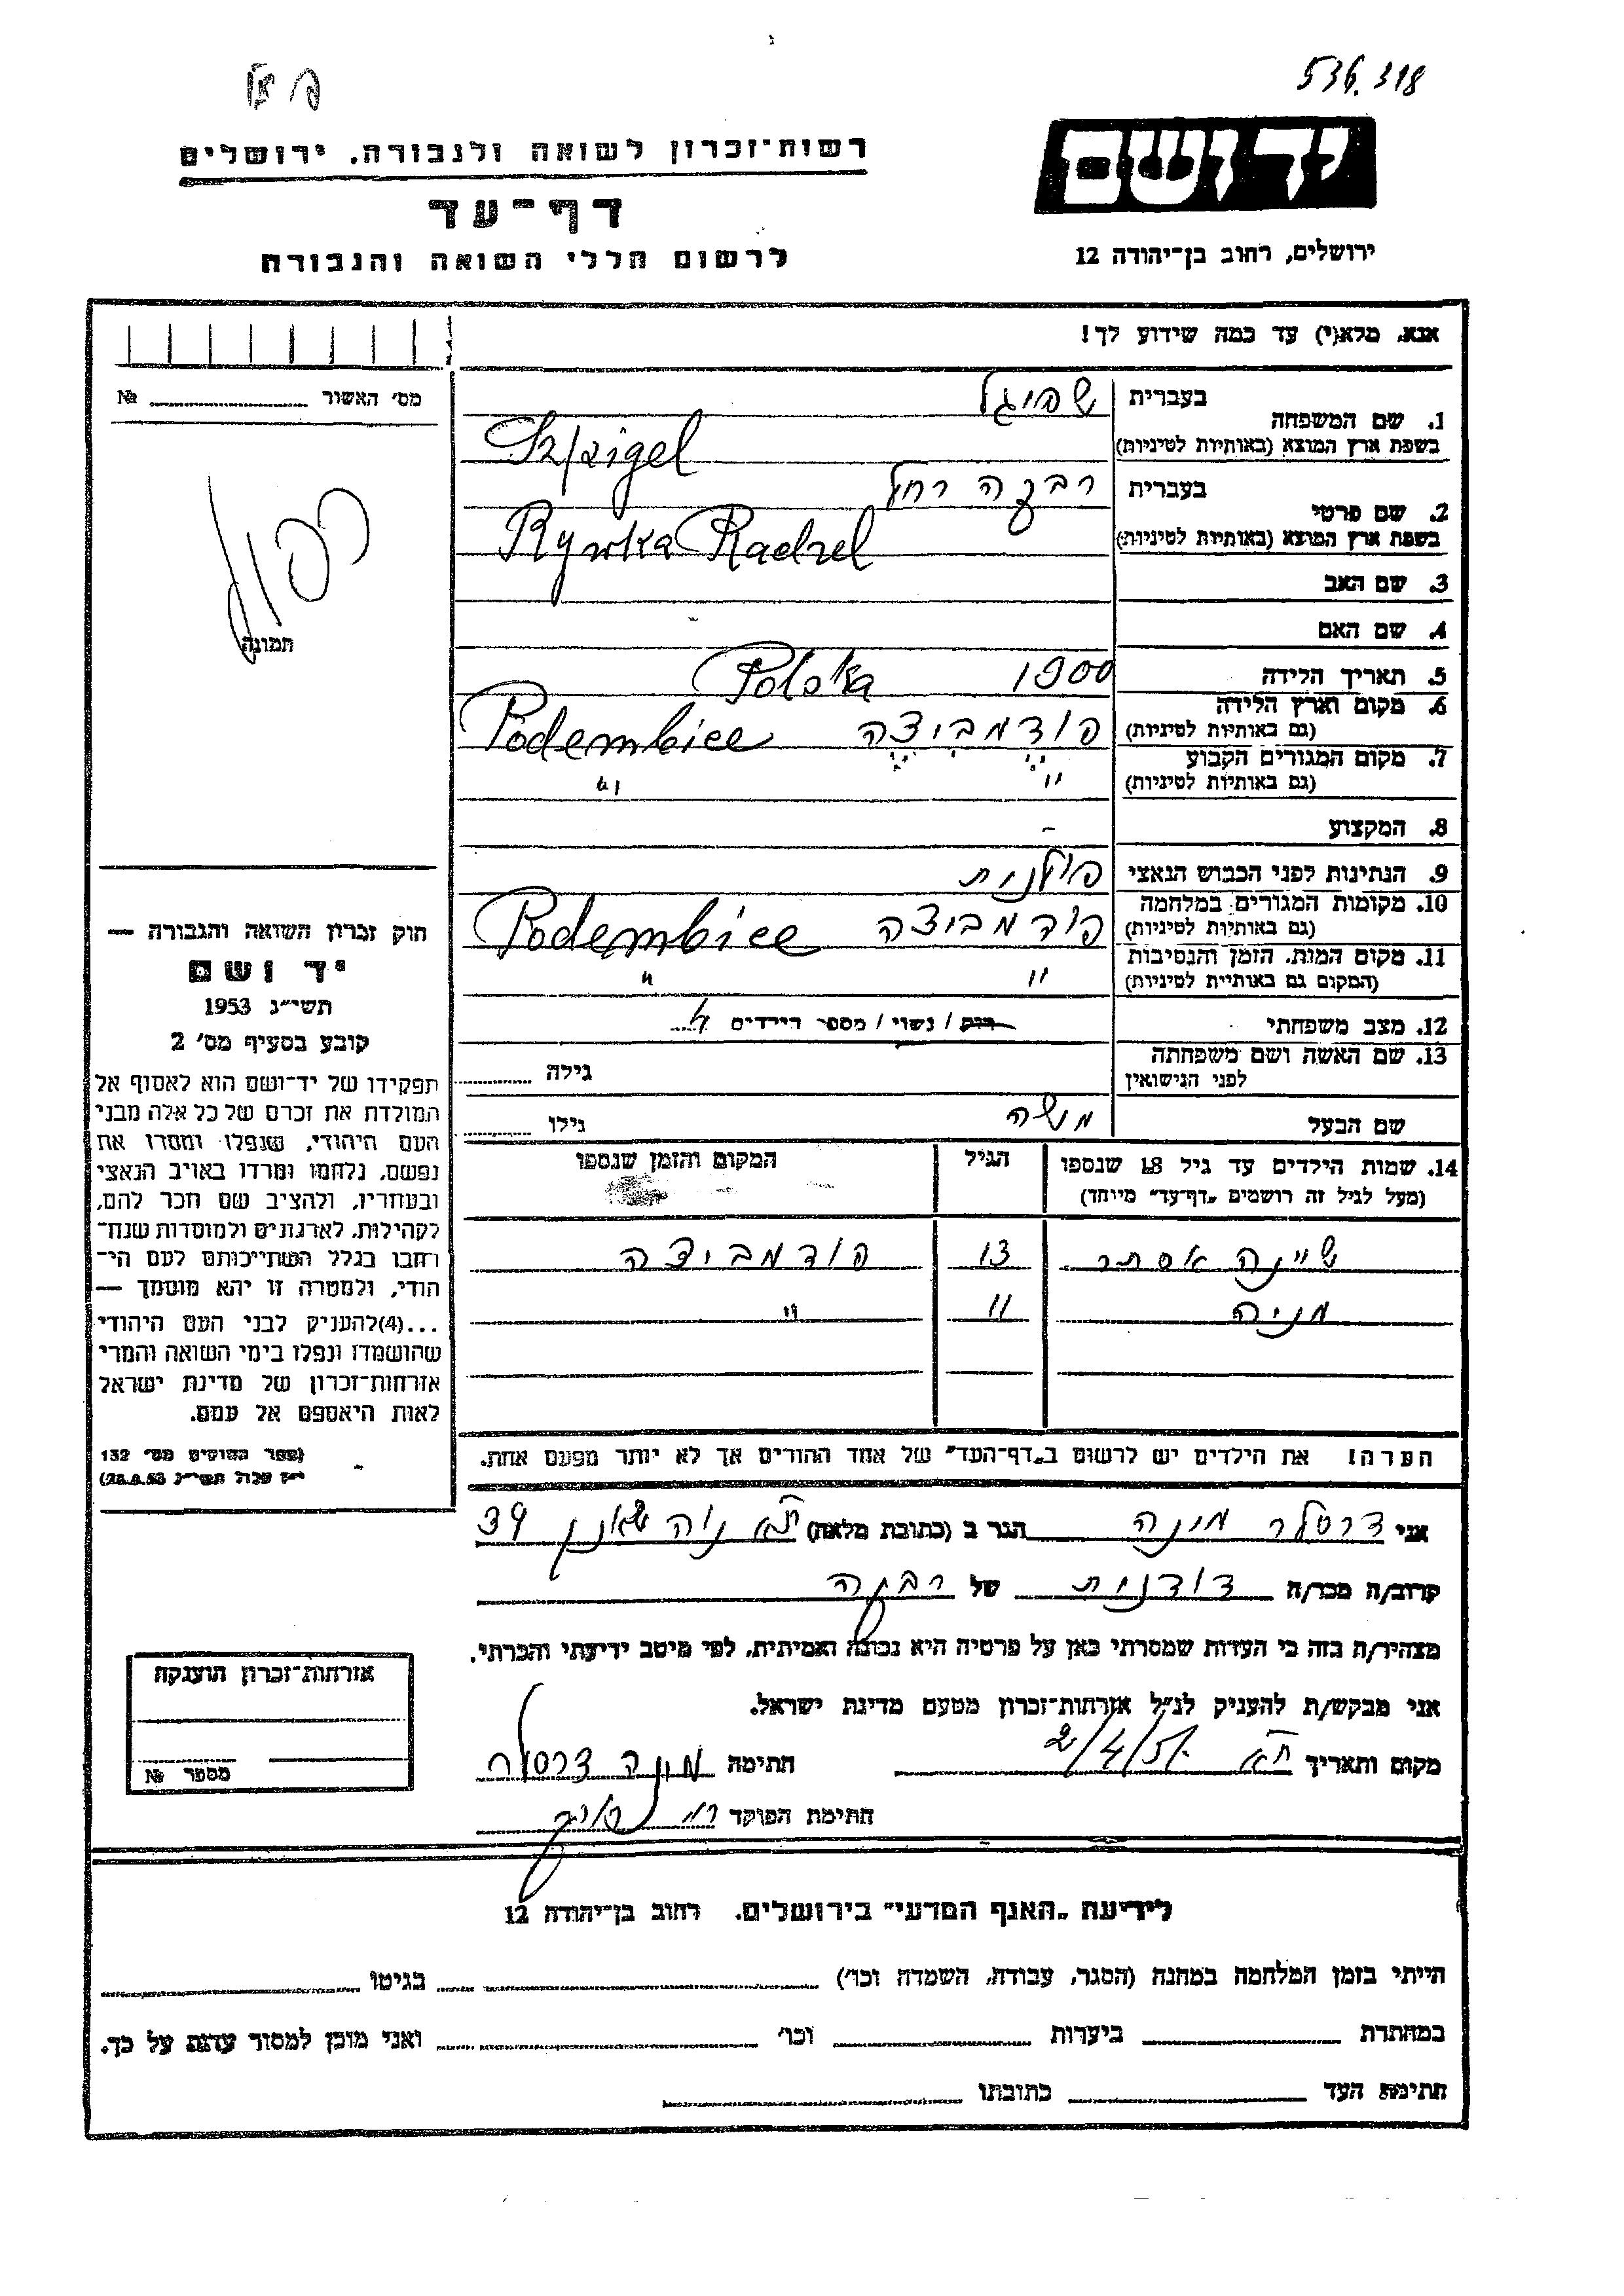 536.318
יד ושם
ירושלים, רחוב בן־יהודה 12
רשות־זכרון לשואה ולגבורה, ירושלים
דף־עד
לרשום חללי השואה והגבורה
אנא, מלא(י) עד כמה שידוע לך!
מס׳ האשור № 
בעברית שפיגל
1. שם המשפחה
בשפת ארץ המוצא (באותיות לטיניות) Szpigel
בעברית רבקה רחל
2. שם פרטי
בשפת ארץ המוצא (באותיות לטיניות) Rywka Rachel
3. שם האב
4. שם האם
תמונה
כפול
5. תאריך הלידה 1900 Polska
6. מקום וארץ הלידה
(גם באותיות לטיניות) פודמביצה Podembice
7. מקום המגורים הקבוע
(גם באותיות לטיניות) " "
8. המקצוע -
9. הנתינות לפני הכבוש הנאצי פולנית
10. מקומות המגורים במלחמה
(גם באותיות לטיניות) פודמביצה Podembice
11. מקום המות, הזמן והנסיבות
(המקום גם באותיות לטיניות) " "
12. מצב משפחתי רוק / נשוי / מספר הילדים
13. שם האשה ושם משפחתה
לפני הנישואין גילה
שם הבעל משה גילו
14. שמות הילדים עד גיל 18 שנספו הגיל המקום והזמן שנספו
(מעל לגיל זה רושמים „דף־עד” מיוחד)
שיינה אסתר 13 פודמביצה
מניה 11 "
הערה! את הילדים יש לרשום ב„דף־העד” של אחד ההורים אך לא יותר מפעם אחת.
חוק זכרון השואה והגבורה —
יד ושם
תשי״ג 1953
קובע בסעיף מס׳ 2
תפקידו של יד־ושם הוא לאסוף אל
המולדת את זכרם של כל אלה מבני
העם היהודי, שנפלו ומסרו את
נפשם, נלחמו ומרדו באויב הנאצי
ובעוזריו, ולהציב שם וזכר להם,
לקהילות, לארגונים ולמוסדות שנח־
רבו בגלל השתייכותם לעם הי־
הודי, ולמטרה זו יהא מוסמך —
...(4)להעניק לבני העם היהודי
שהושמדו ונפלו בימי השואה והמרי
אזרחות־זכרון של מדינת ישראל
לאות היאספם אל עמם.
(ספר החוקים מס׳ 132
י״ז אלול תשי״ג 28.8.53)
אני דרסלר מינה הגר ב (כתובת מלאה) ת״א נוה שאנן 39
קרוב/ה מכר/ה דודנית של רבקה
מצהיר/ה בזה כי העדות שמסרתי כאן על פרטיה היא נכונה ואמיתית, לפי מיטב ידיעתי והכרתי.
אני מבקש/ת להעניק לנ״ל אזרחות־זכרון מטעם מדינת ישראל.
מקום ותאריך ת״א חתימה מינה דרסלר
חתימת הפוקד
אזרחות־זכרון הוענקה
מספר №
לידיעת „האגף המדעי” בירושלים, רחוב בן־יהודה 12
הייתי בזמן המלחמה במחנה (הסגר, עבודה, השמדה וכו׳) בגיטו
במחתרת ביערות וכו׳ ואני מוכן למסור עדות על כך.
חתימת העד כתובתו